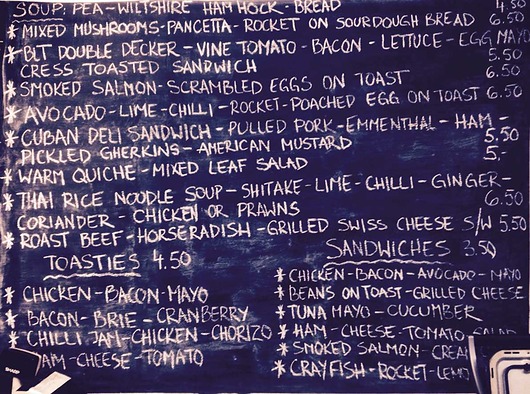 SOUP: PEA - WILTSHIRE HAM HOCK - BREAD 4.50
* MIXED MUSHROOMS - PANCETTA - ROCKET ON SOURDOUGH BREAD 6.50
* BLT DOUBLE DECKER - VINE TOMATO - BACON - LETTUCE - EGG MAYO
CRESS TOASTED SANDWICH 5.50
* SMOKED SALMON - SCRAMBLED EGGS ON TOAST 6.50
* AVOCADO - LIME - CHILLI - ROCKET - POACHED EGG ON TOAST 6.50
* CUBAN DELI SANDWICH - PULLED PORK - EMMENTHAL - HAM -
PICKLED GHERKINS - AMERICAN MUSTARD 5.50
* WARM QUICHE - MIXED LEAF SALAD 5.-
* THAI RICE NOODLE SOUP - SHITAKE - LIME - CHILLI - GINGER -
CORIANDER - CHICKEN OR PRAWNS 6.50
* ROAST BEEF - HORSERADISH - GRILLED SWISS CHEESE S/W 5.50
TOASTIES 4.50
* CHICKEN - BACON - MAYO
* BACON - BRIE - CRANBERRY
* CHILLI JAM - CHICKEN - CHORIZO
HAM - CHEESE - TOMATO
SANDWICHES 3.50
* CHICKEN - BACON - AVOCADO - MAYO
* BEANS ON TOAST - GRILLED CHEESE
* TUNA MAYO - CUCUMBER
* HAM - CHEESE - TOMATO SALAD
* SMOKED SALMON - CREAM
* CRAYFISH - ROCKET - LEMO
SHARP